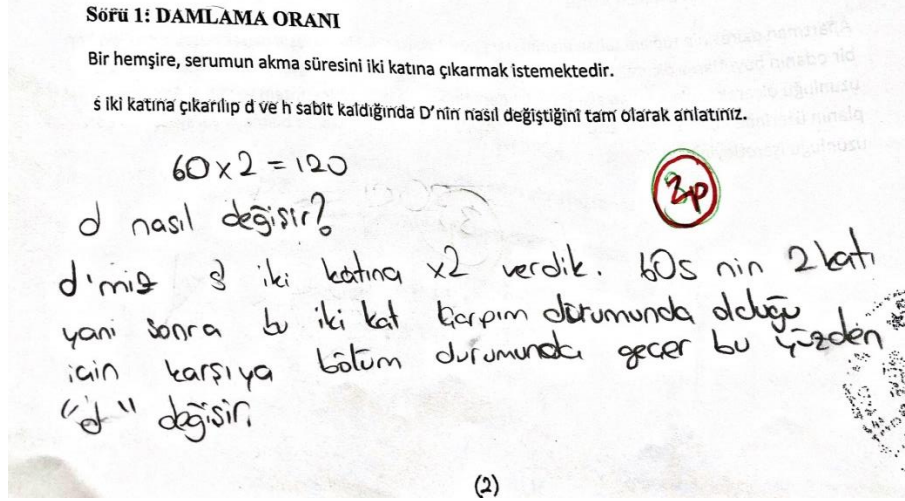 Soru 1: DAMLAMA ORANI
Bir hemşire, serumun akma süresini iki katına çıkarmak istemektedir.
s iki katına çıkarılıp d ve h sabit kaldığında D'nin nasıl değiştiğini tam olarak anlatınız.
60 x 2 = 120
3p
d nasıl değişir?
d'miz s iki katına x2 verdik. 60s nin 2 katı
yani sonra bu iki kat çarpım durumunda olduğu
için karşıya bölüm durumunda geçer bu yüzden
"d" değişir.
(2)